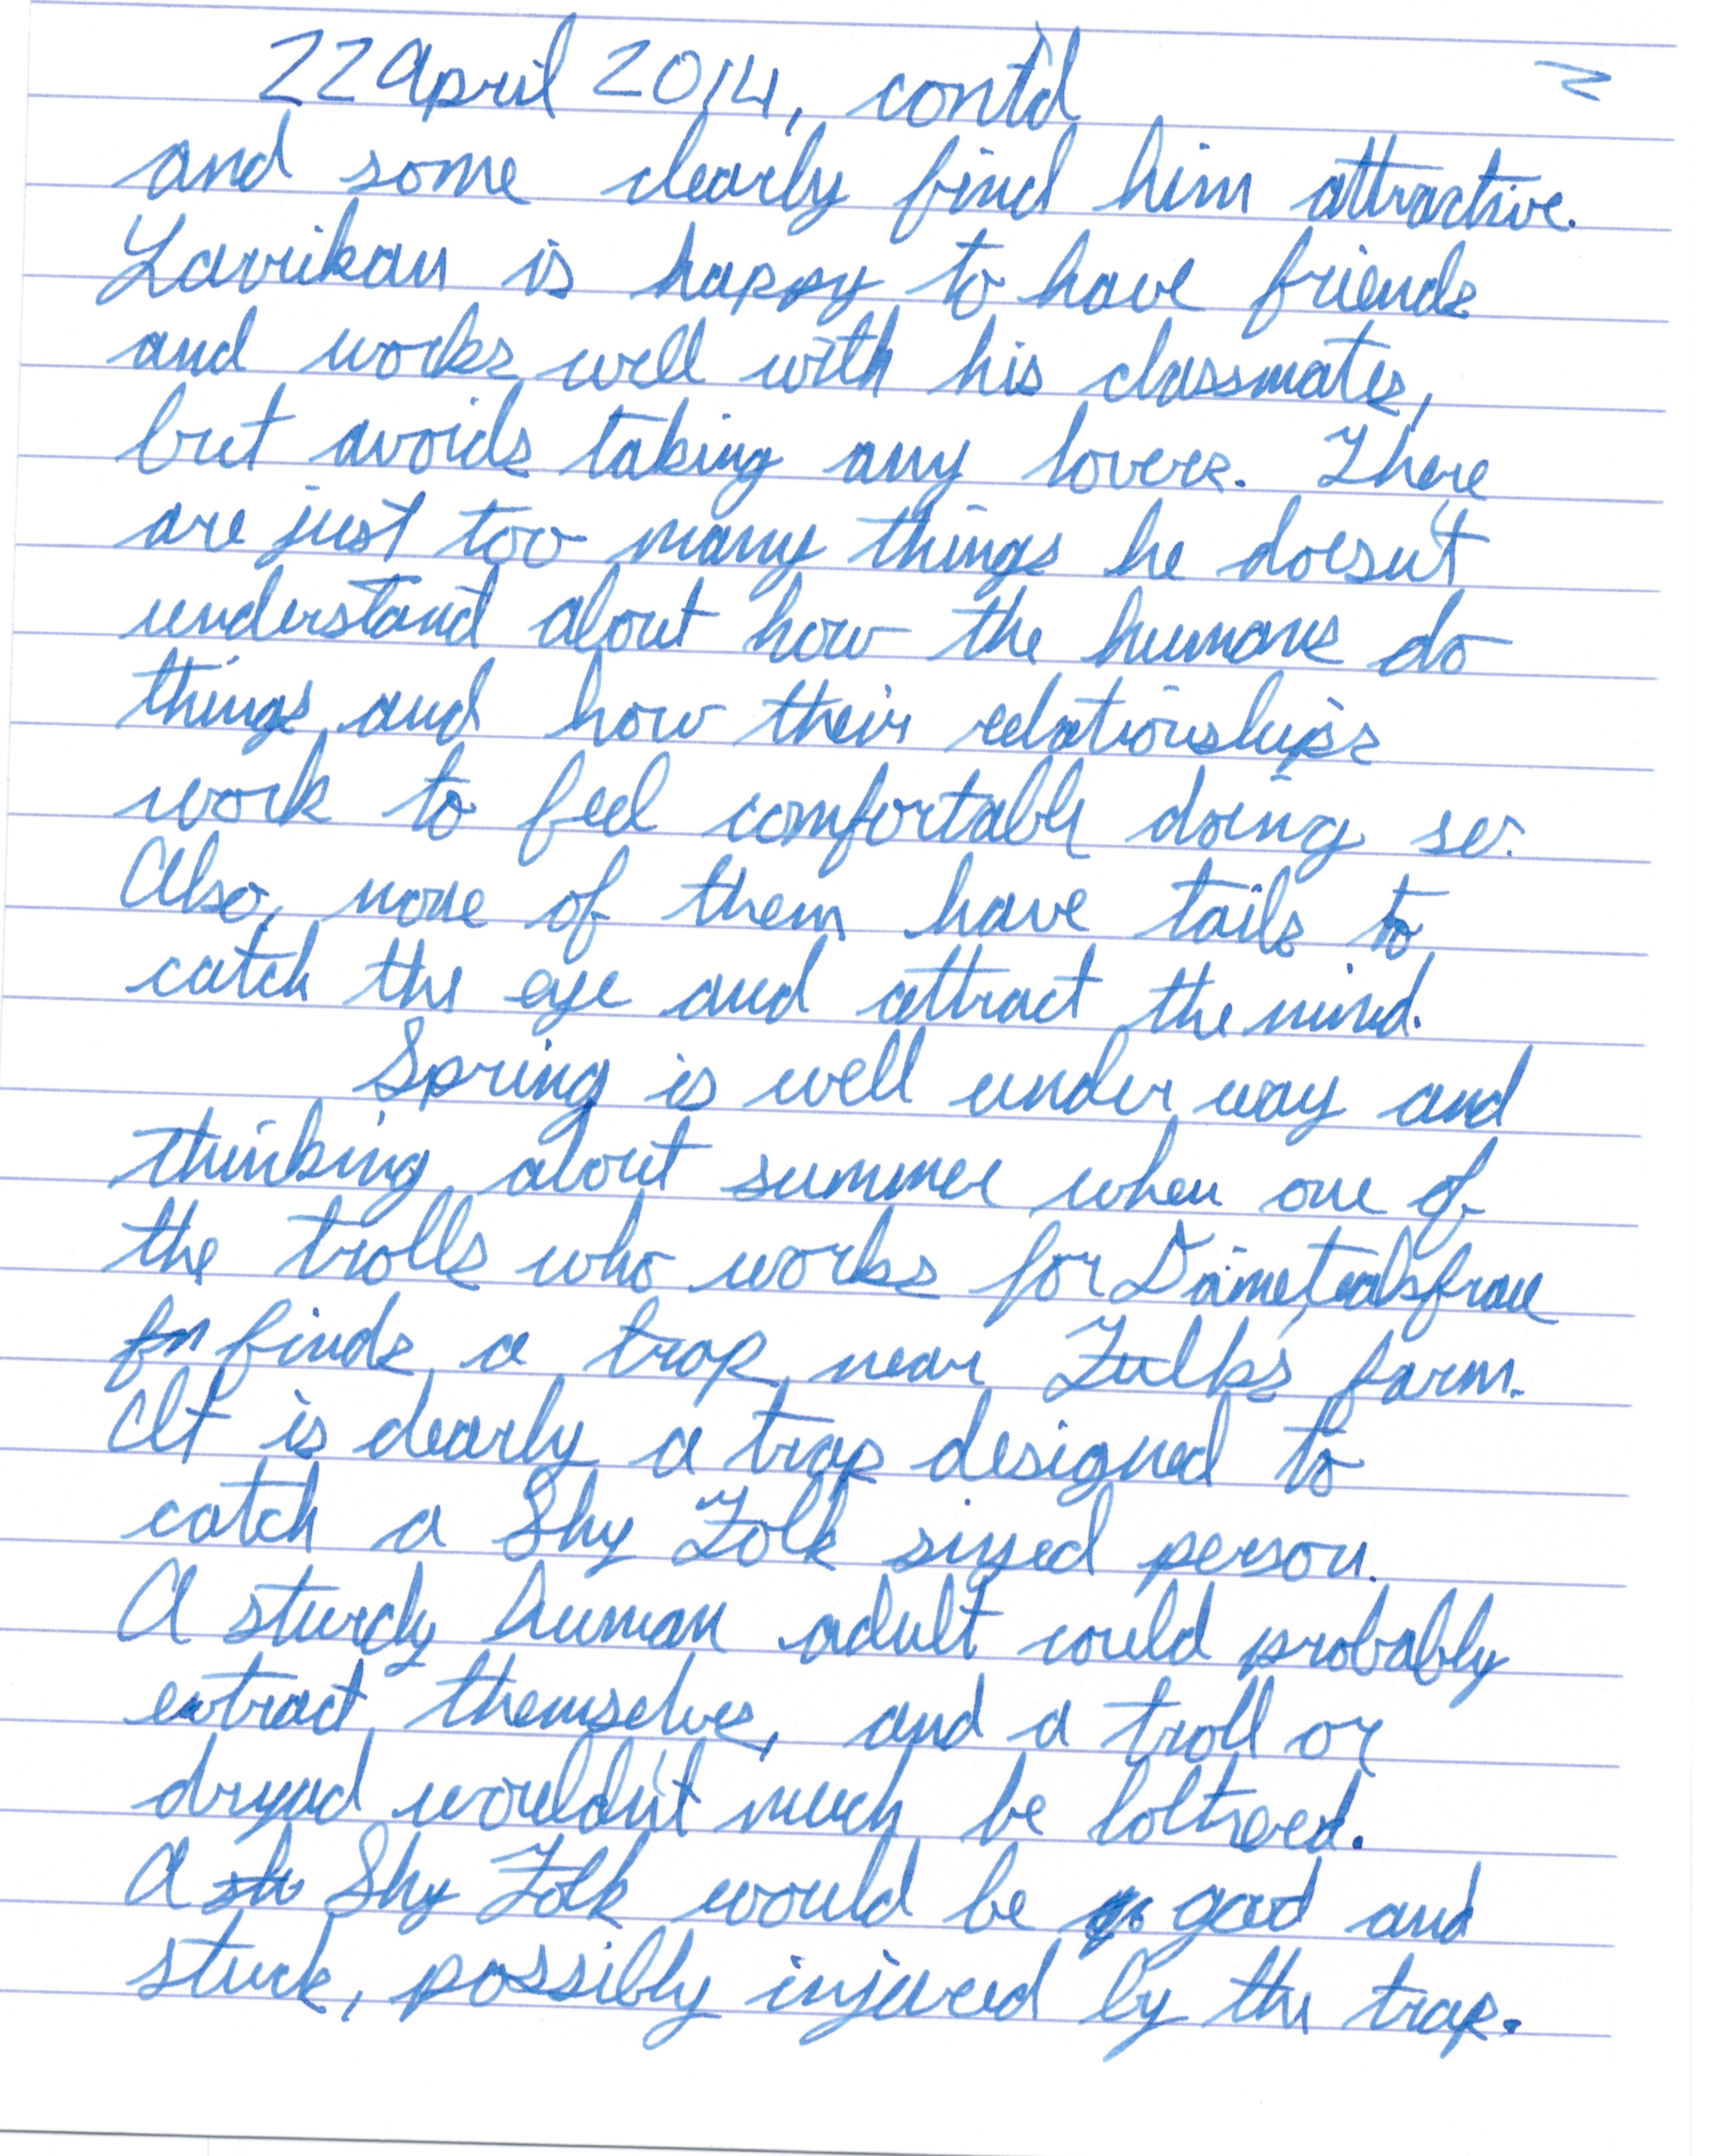 22 April 2014, cont'd
and some clearly find him attractive.
Lavrikan is happy to have friends
and works well with his classmates,
but avoids taking any lovers. There
are just too many things he doesn't
understand about how the humans do
things and how their relationships
work to feel comfortably doing so.
Also, none of them have tails to
catch the eye and attract the mind.
Spring is well under way and
thinking about summer when one of
the trolls who works for
finds a trap near Fulk's farm.
It is clearly a trap designed to
catch a Shy Folk sized person.
A sturdy human adult could probably
extract themselves, and a troll or
dryad wouldn't much be boltered.
A Shy Folk would be good and
stuck, possibly injured by the trap.